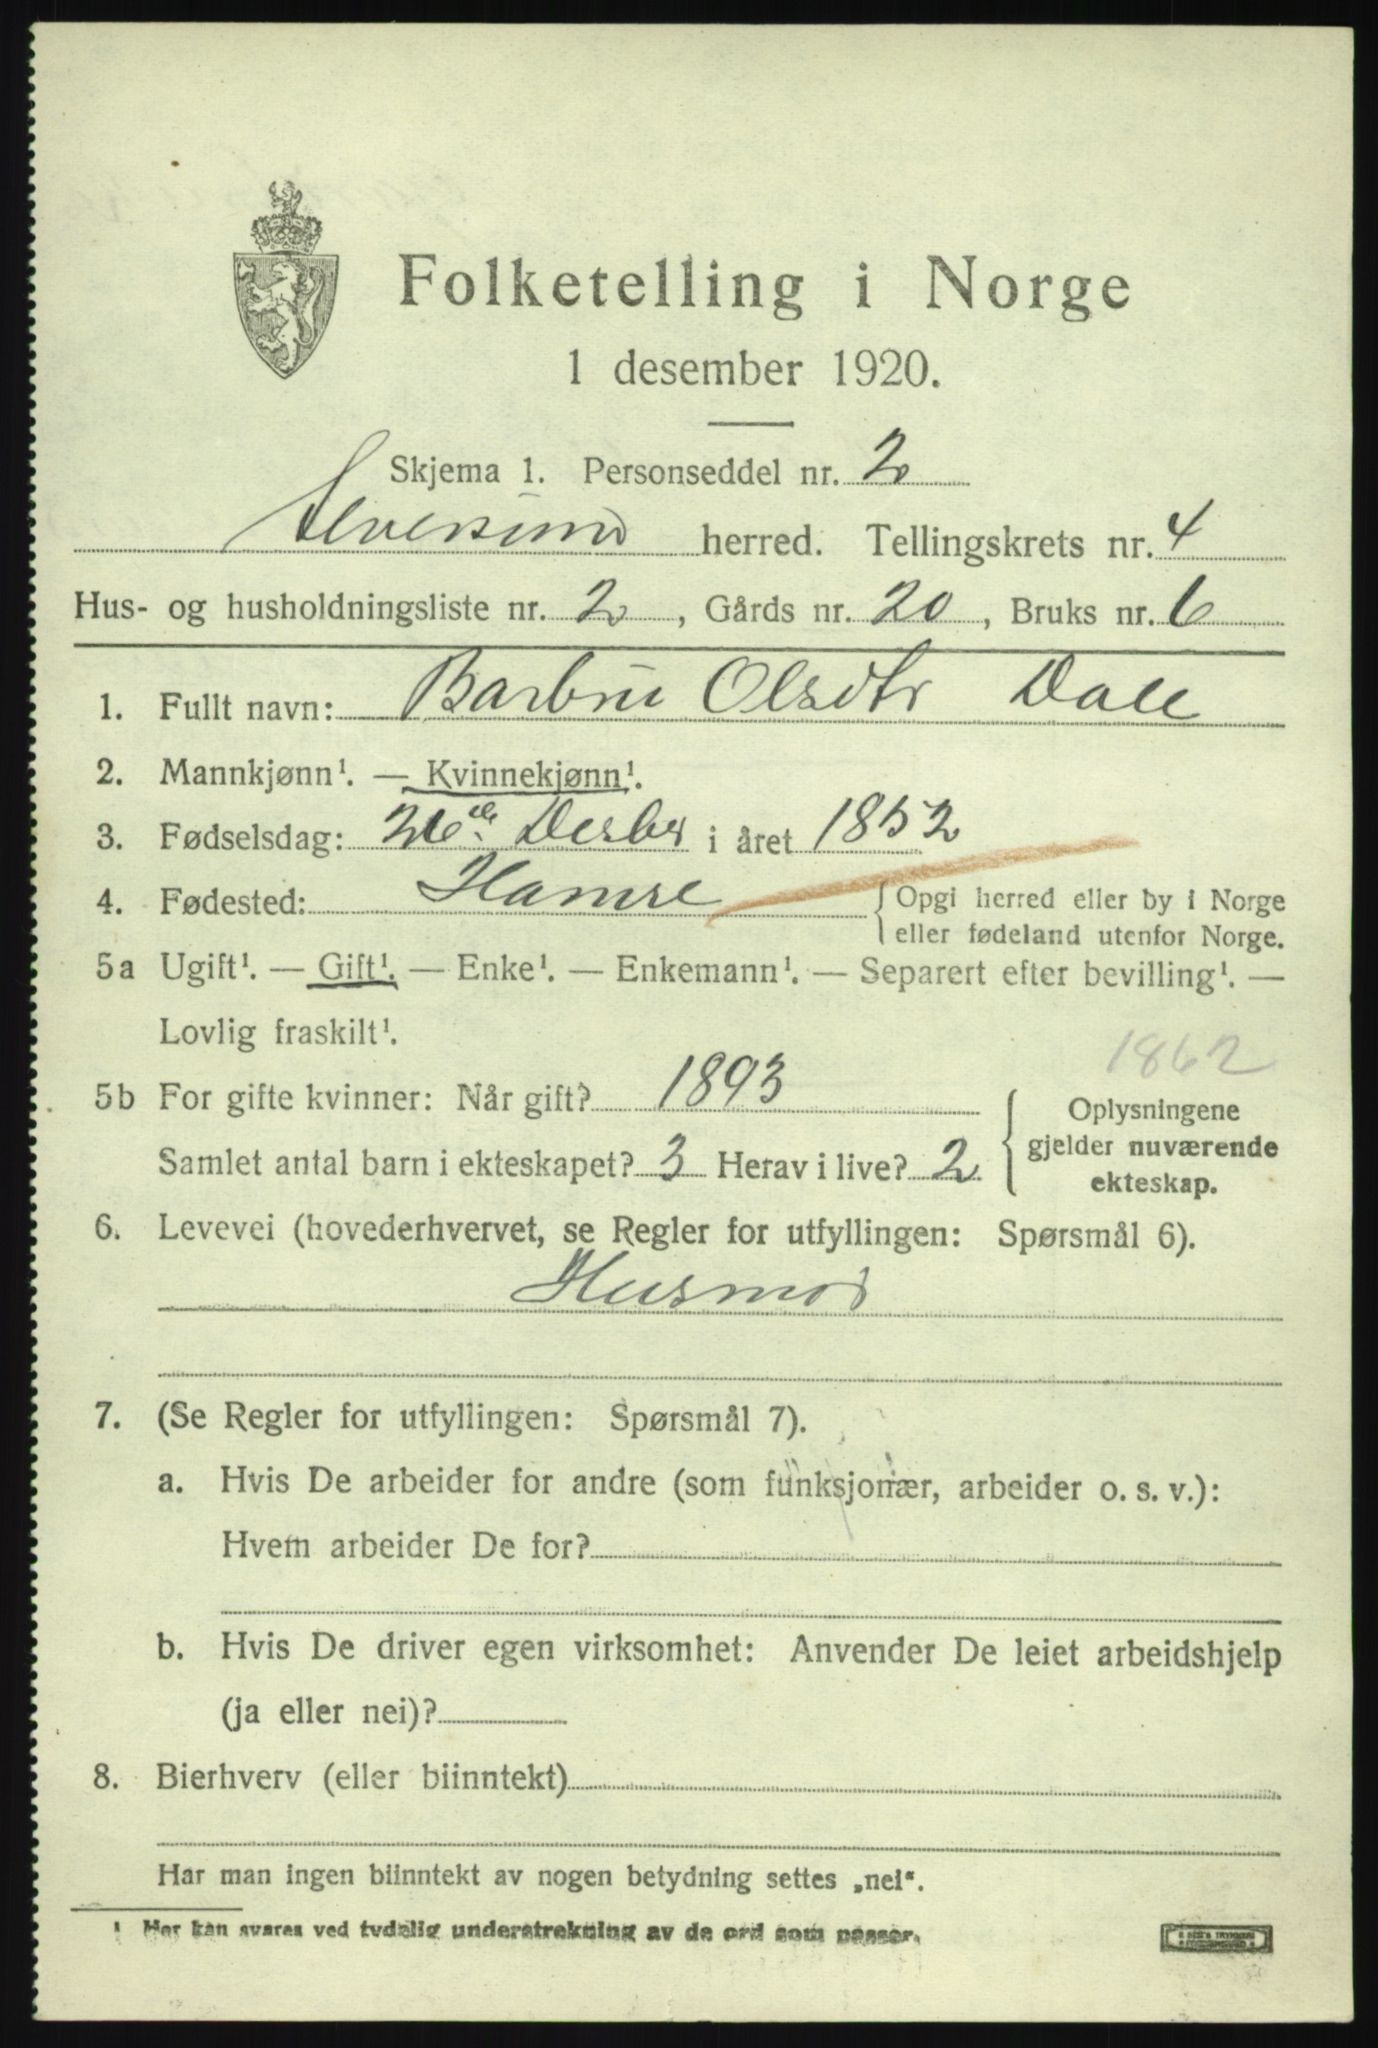 Folketelling i Norge
1 desember 1920.
Skjema 1. Personseddel nr. 2
Alversund herred. Tellingskrets nr. 4
Hus- og husholdningsliste nr. 2, Gårds nr. 20, Bruks nr. 6
1. Fullt navn: Barbru Olsdtr Dale
2. Mannkjønn¹. — Kvinnekjønn¹.
3. Fødselsdag: 26de Desbr i året 1852
4. Fødested: Hamre {Opgi herred eller by i Norge
eller fødeland utenfor Norge.
5a Ugift¹. — Gift¹. — Enke¹. — Enkemann¹. — Separert efter bevilling¹. —
Lovlig fraskilt¹.
1862
5b For gifte kvinner: Når gift? 1893 Oplysningene
gjelder nuværende
Samlet antal barn i ekteskapet? 3 Herav i live? 2
ekteskap.
6. Levevei (hovederhvervet, se Regler for utfyllingen: Spørsmål 6).
Husmor
7. (Se Regler for utfyllingen: Spørsmål 7).
a. Hvis De arbeider for andre (som funksjonær, arbeider o. s. v.):
Hvem arbeider De for?
b. Hvis De driver egen virksomhet: Anvender De leiet arbeidshjelp
(ja eller nei)?
8. Bierhverv (eller biinntekt)
Har man ingen biinntekt av nogen betydning settes „nei“.
¹ Her kan svares ved tydelig understrekning av de ord som passer.